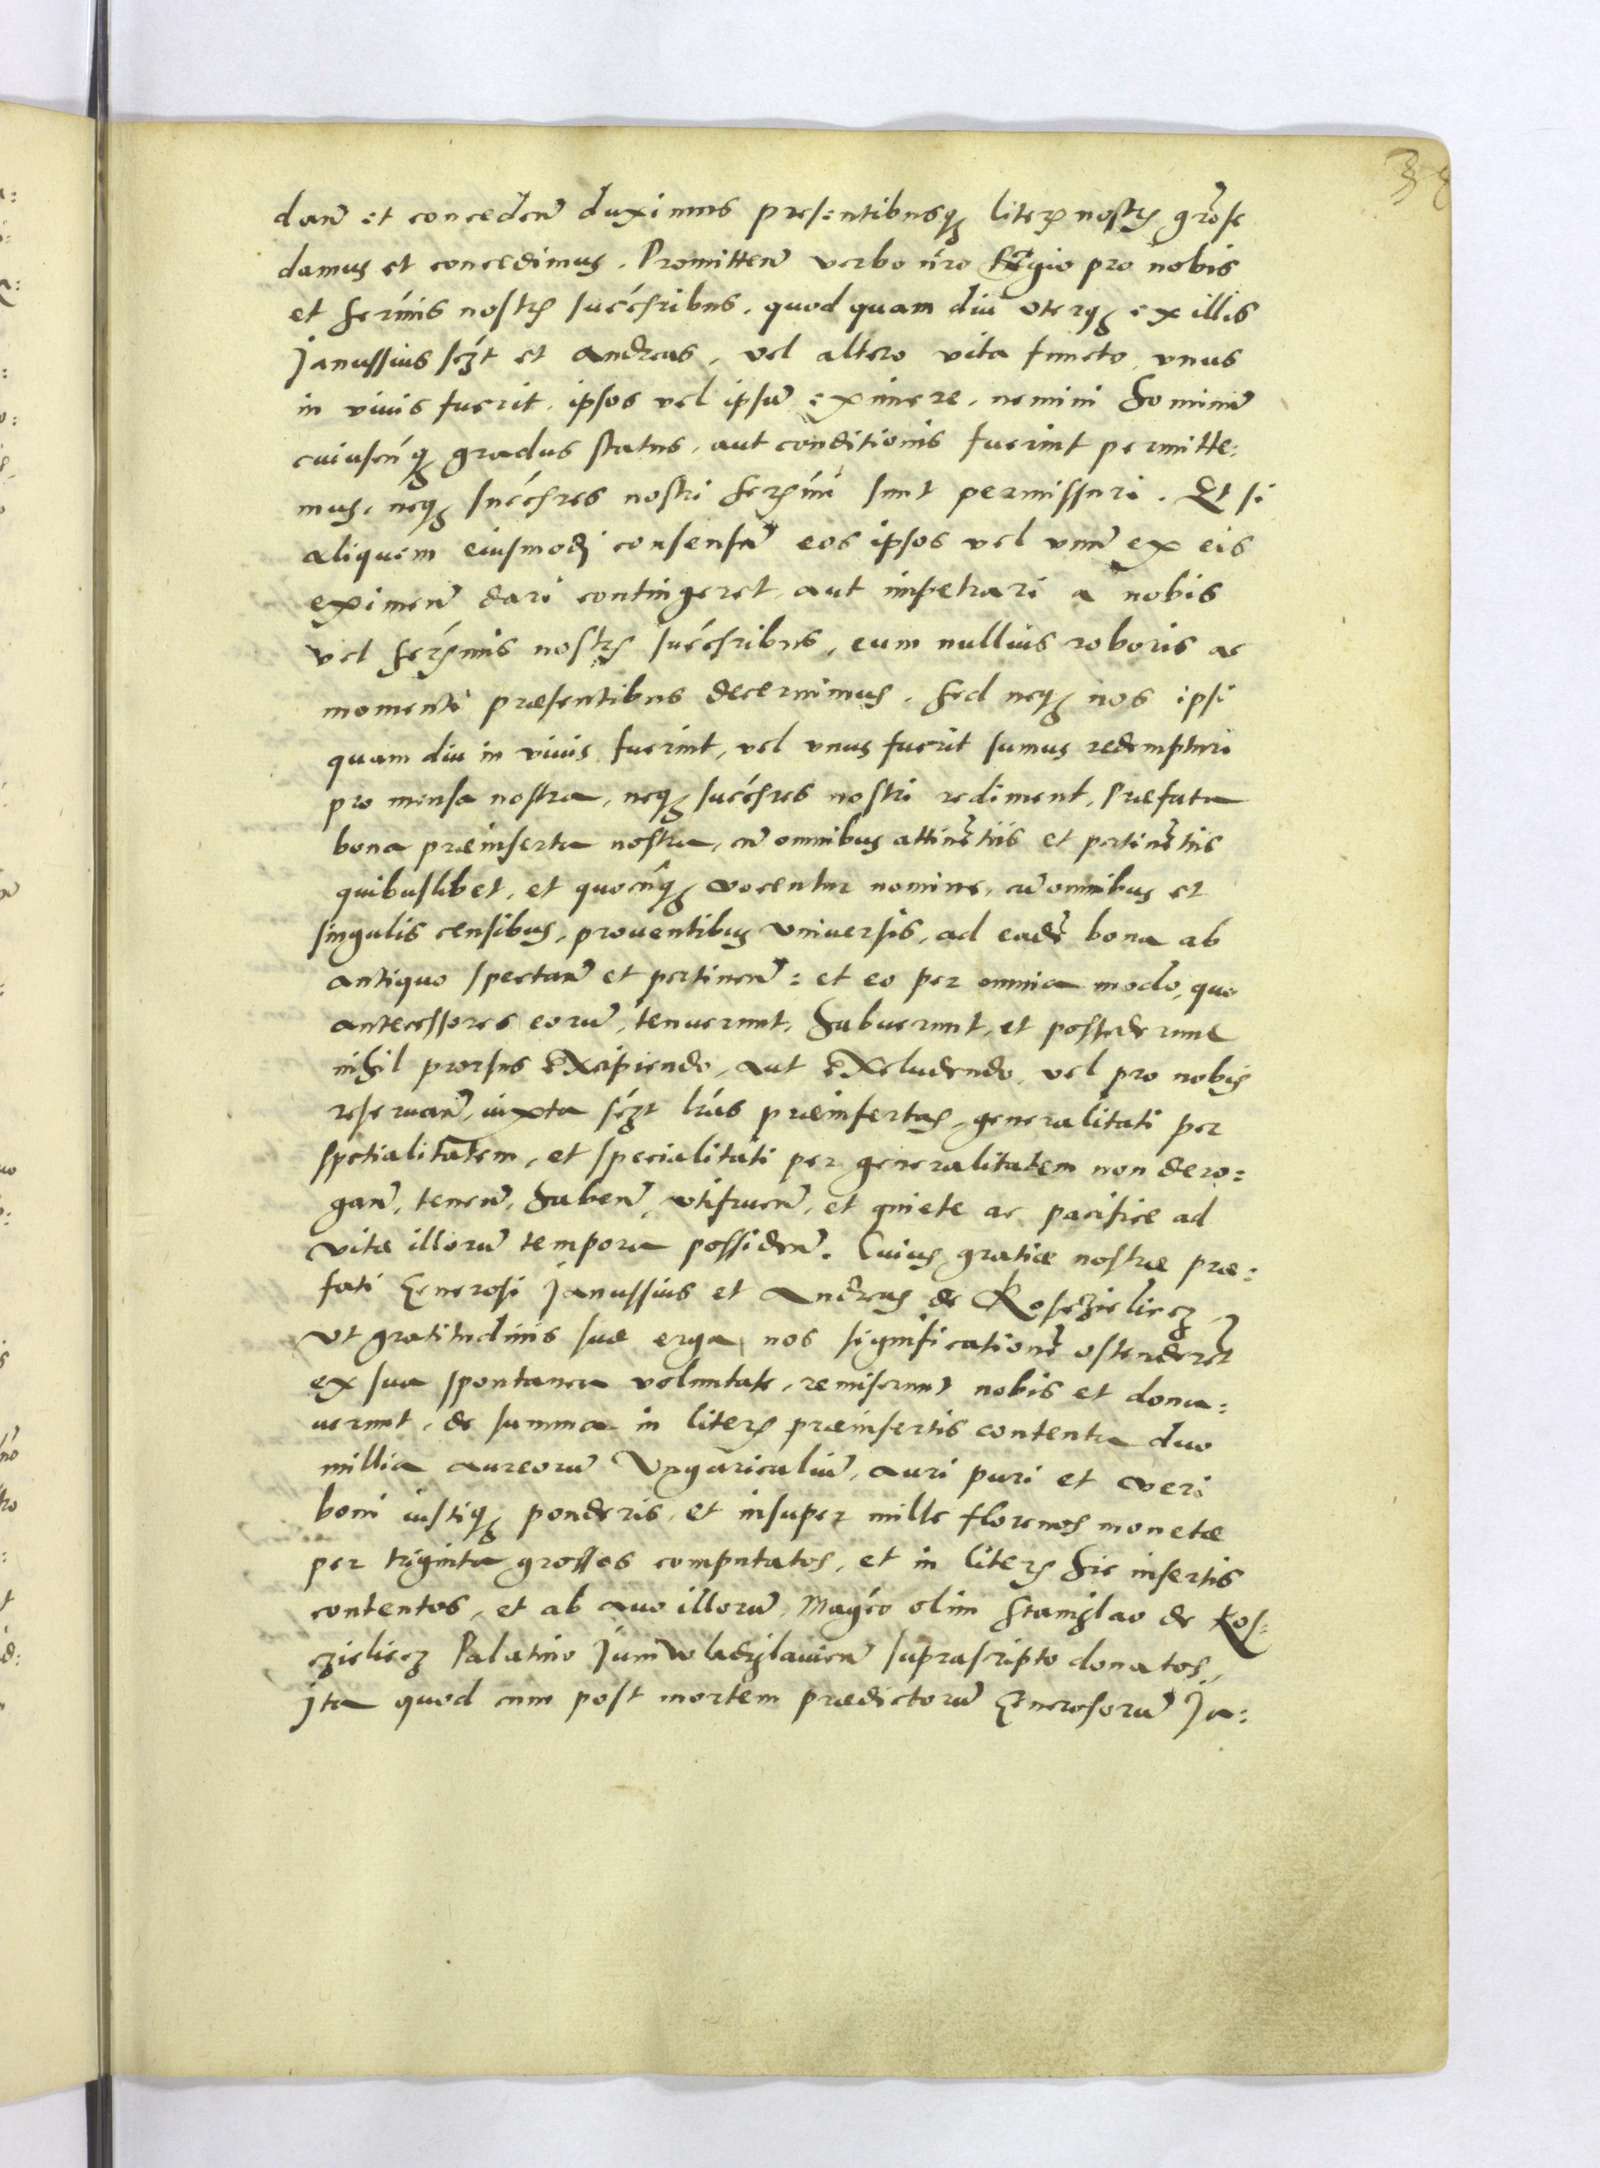 38
dan̄ et conceden̄ duximus presentibusq̨ literꝭ nostrꝭ grōse
damus et concedimus. Promitten̄ verbo nr̄o Regio pro nobis
et sermīs nostrꝭ succ̄sribus, quod quam diu uterq̨ ex illis
Janussius scꝫt et Andreas, vel altero vita functo, vnus
in viuis fuerit, ipsos vel ipsū eximere, nemini hominū
cuiuscūq̨ gradus status, aut conditionis fuerint permitte:
mus, neq̨ succ̄sres nostri serꝭmī sunt permissuri. Et si
aliquem eiusmodi consensū eos ipsos vel vnū ex eis
eximen̄ dari contingeret, aut impetrari a nobis
vel serꝭmis nostrꝭ succ̄sribus, eum nullius roboris ac
momenti præsentibus decernimus. Sed neq̨ nos ipsi
quam diu in viuis fuerint, vel vnus fuerit sumus redempturi
pro mensa nostra, neq̨ succ̄sres nostri rediment. Præfata
bona præinserta nostra, cū omnibus attinētiis et pertinētiis
quibuslibet, et quocūq̨ vocentur nomine, cū omnibus et
singulis censibus, prouentibus vniuersis, ad eadē bona ab
antiquo spectan̄ et pertinen̄: et eo per omnia modo, quo
antecessores eorū, tenuerunt, habuerunt, et possederunt
nihil prorsus excipiendo, aut excludendo, vel pro nobis
reseruan̄, iuxta scꝫt lr̄as præinsertas, generalitati per
spetialitatem, et specialitati per generalitatem non dero:
gan̄, tenen̄, haben̄, vtifruen̄, et quiete ac pacifice ad
vitæ illorū tempora possiden̄. Cuius gratiæ nostræ præ:
fati Generosi Janussius et Andreas de Kosczieliecz,
vt gratitudinis suæ erga nos significationē ostenderēt
ex sua spontanea voluntate, remiserunt nobis et dona:
uerunt, de summa in literꝭ præinsertis contenta duo
millia aureorū Vngaricaliū, auri puri et veri
boni iustiq̨ ponderis, et insuper mille florenos monetæ
per triginta grossos computatos, et in literꝭ hic insertis
contentos, et ab auo illorū, Magc̄o olim Stanislao de Kos:
czieliecz Palatino Juniwladislauien̄ suprascripto donatos,
Ita quod cum post mortem prædictorū Generosorū Ja: